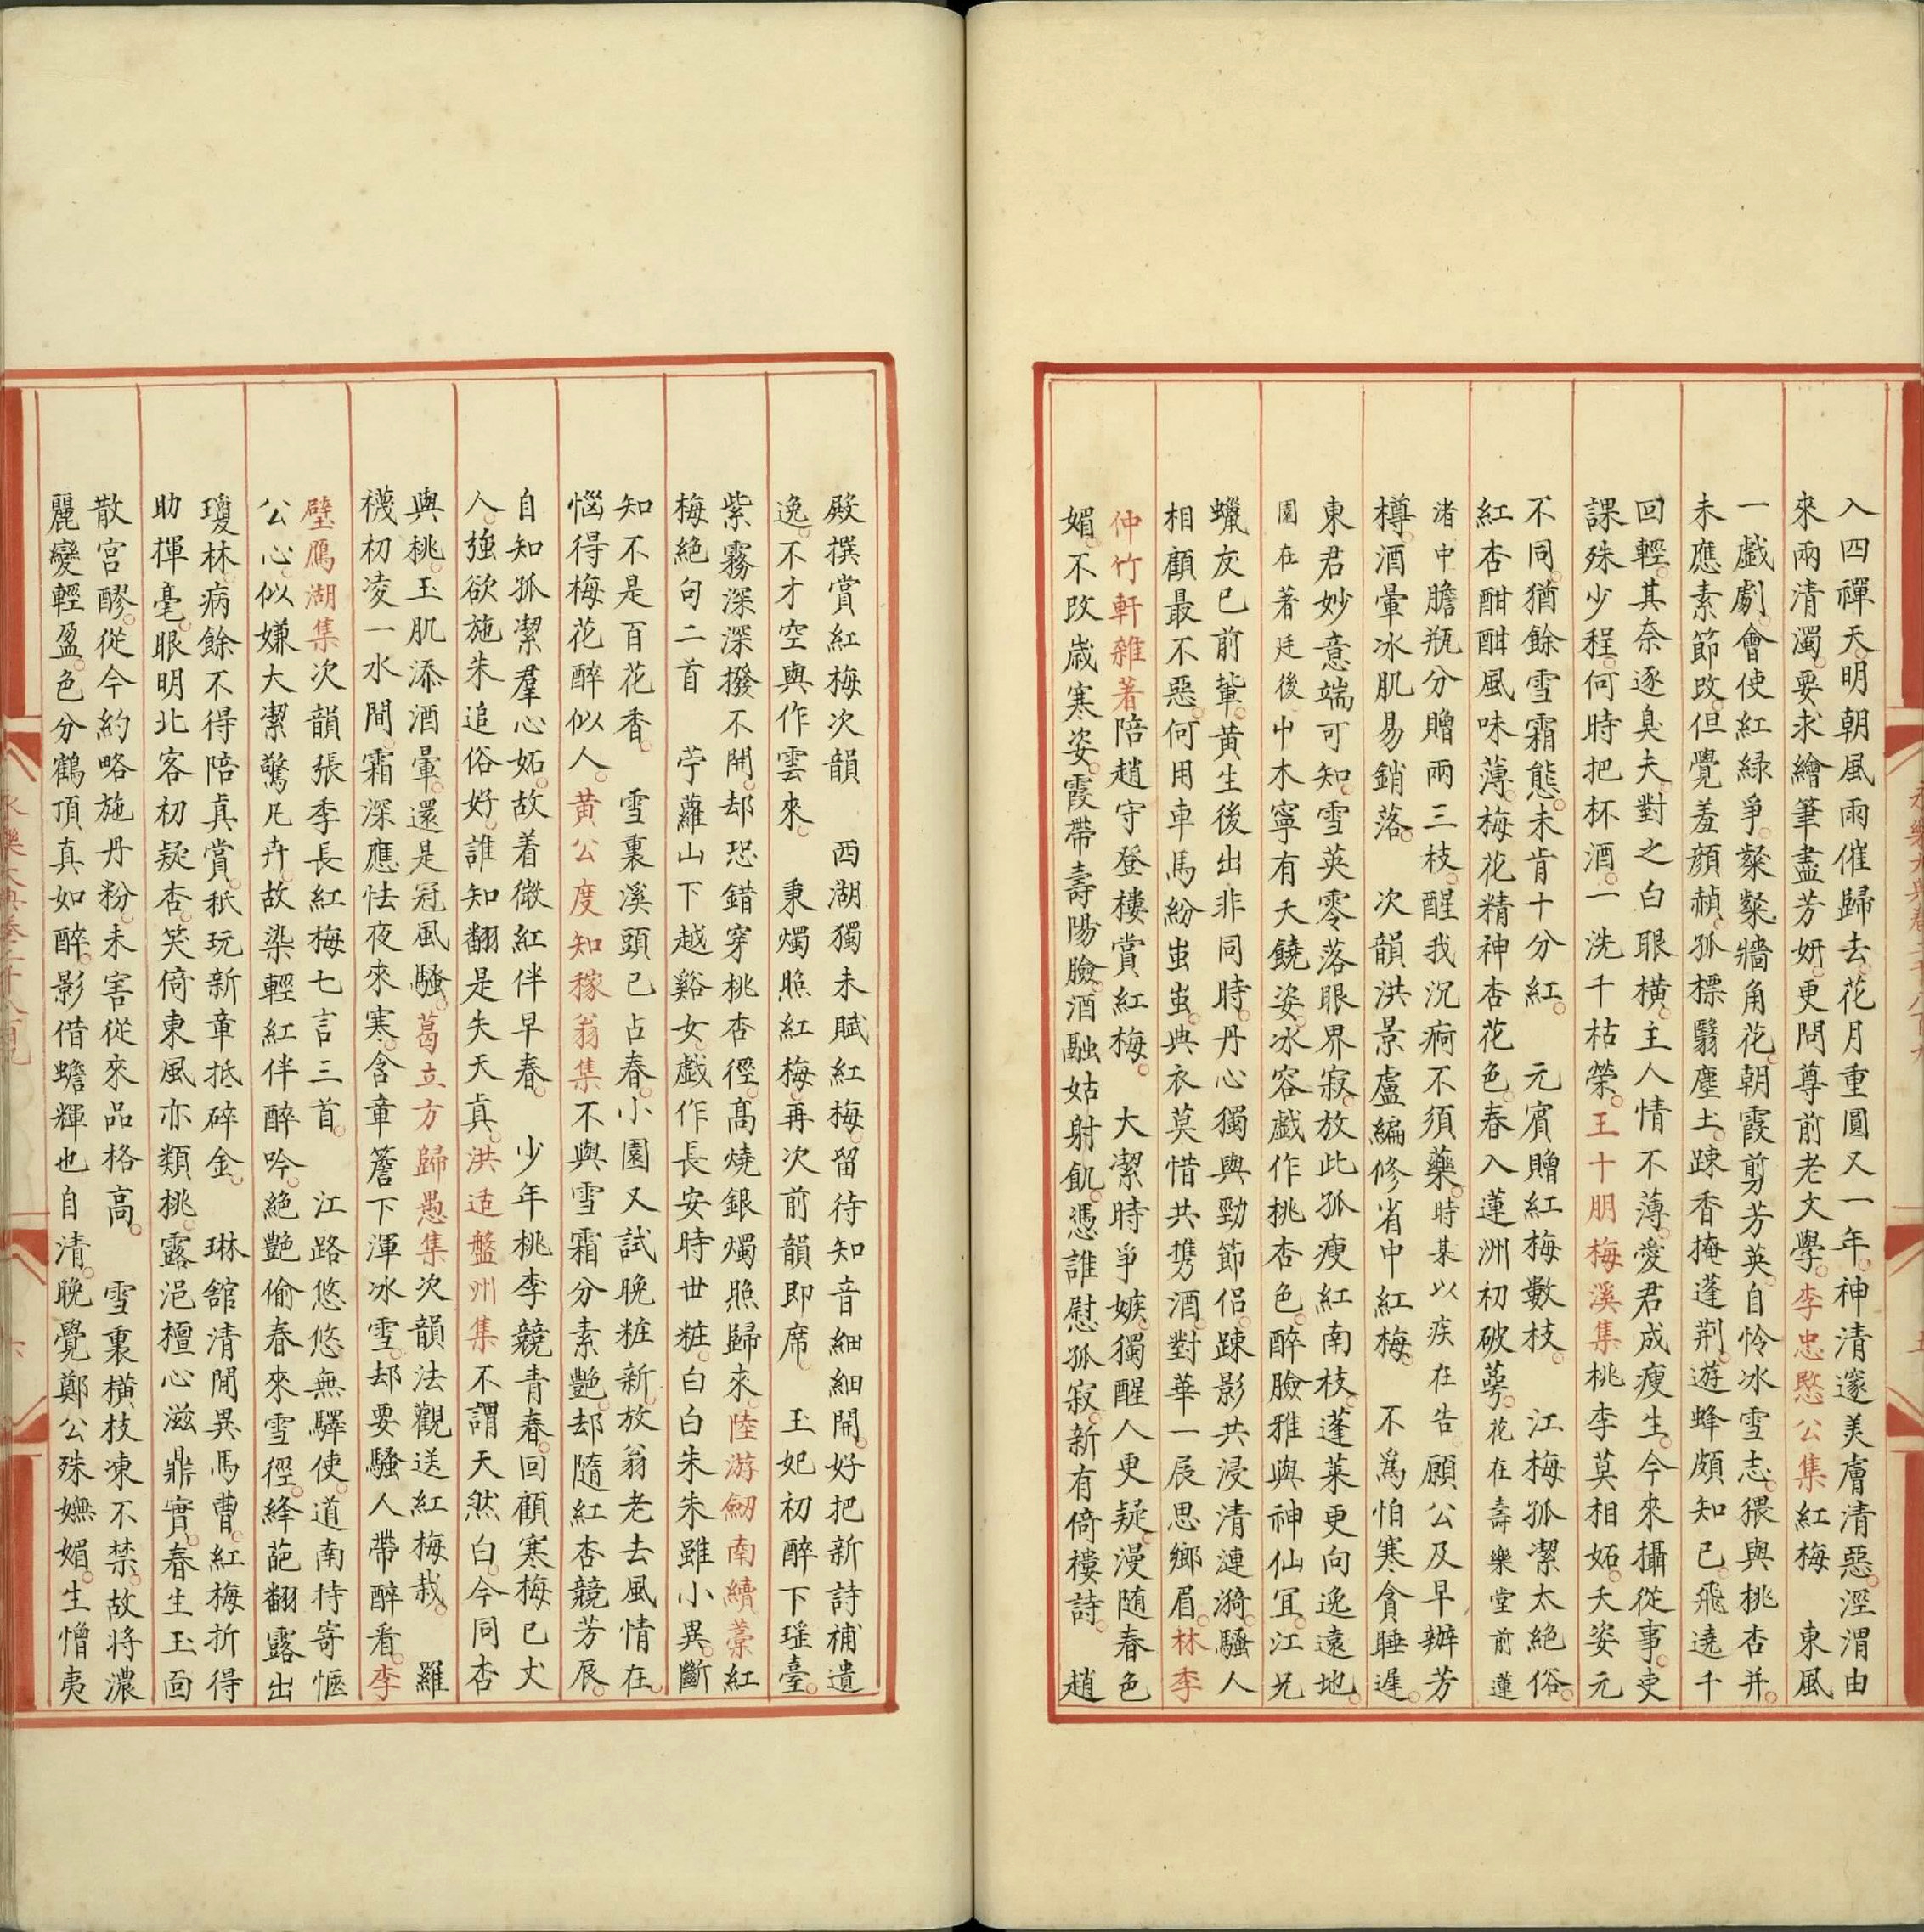 入四禪天明朝風雨催歸去花月重圓又一年神清邃美膚清惡涇渭由
來兩清濁要求繪筆盡芳妍更問尊前老文學李忠愍公集紅梅　東風
一戲劇會使紅緑爭粲粲牆角花朝霞剪芳英自怜冰雪志猥與桃杏并
未應素節改但覺羞顔赬孤標翳塵土踈香掩蓬荆遊蜂頗知已飛遶千
回輕其奈逐臭夫對之白眼橫主人情不薄愛君成瘦生今來攝從事吏
課殊少程何時把杯酒一洗千枯榮王十朋梅溪集桃李莫相妬夭姿元
不同猶餘雪霜態未肯十分紅　元賓贈紅梅數枝　江梅孤潔太絶俗
紅杏酣酣風味薄梅花精神杏花色春入蓮洲初破蕚花在壽樂堂前蓮
渚中膽瓶分贈兩三枝醒我沉痾不須藥時某以疾在告願公及早辦芳
樽酒暈冰肌易銷落　次韻洪景盧編修省中紅梅　不爲怕寒貪睡遲
東君妙意端可知雪英零落眼界寂放此孤瘦紅南枝蓬萊更向逸遠地
園在著廷後中木寧有夭饒姿冰容戲作桃杏色醉臉雅與神仙宜江兄
蠟灰已前輩黄生後出非同時丹心獨與勁節侶踈影共浸清漣漪騷人
相顧最不惡何用車馬紛蚩蚩典衣莫惜共携酒對華一辰思鄉眉林季
仲竹軒雜著陪趙守登樓賞紅梅　大潔時爭嫉獨醒人更疑漫随春色
媚不改歲寒姿霞帶壽陽臉酒融姑射飢憑誰慰孤寂新有倚樓詩　趙
殿撰賞紅梅次韻　西湖獨未賦紅梅留待知音細細開好把新詩補遺
逸不才空與作雲來　秉燭照紅梅再次前韻即席　玉妃初醉下瑶臺
紫霧深深撥不開却恐錯穿桃杏徑高燒銀燭照歸來陸游劒南續藁紅
梅絶句二首　苧蘿山下越谿女戲作長安時世粧白白朱朱雖小異斷
知不是百花香　雪裏溪頭已占春小園又試晚粧新放翁老去風情在
惱得梅花醉似人黄公度知稼翁集不與雪霜分素艶却隨紅杏競芳辰
自知孤潔羣心妬故着微紅伴早春　少年桃李競青春回顧寒梅已丈
人強欲施朱追俗好誰知翻是失天真洪适盤州集不謂天然白今同杏
與桃玉肌添酒暈還是冠風騷葛立方歸愚集次韻法觀送紅梅栽　羅
襪初凌一水間霜深應怯夜來寒含章簷下渾冰雪却要騷人帶醉看李
壁鴈湖集次韻張李長紅梅七言三首　江路悠悠無驛使道南持寄愜
公心似嫌大潔驚凡卉故染輕紅伴醉吟絶艶偷春來雪徑絳葩翻露出
瓊林病餘不得陪真賞秖玩新章抵碎金　琳舘清閒異馬曹紅梅折得
助揮毫眼明北客初疑杏笑倚東風亦類桃露浥檀心滋鼎實春生玉面
散宫醪從今約略施丹粉未害從來品格高　雪裏橫枝凍不禁故将濃
麗變輕盈色分鶴頂真如醉影借蟾輝也自清晚覺鄭公殊嫵媚生憎夷